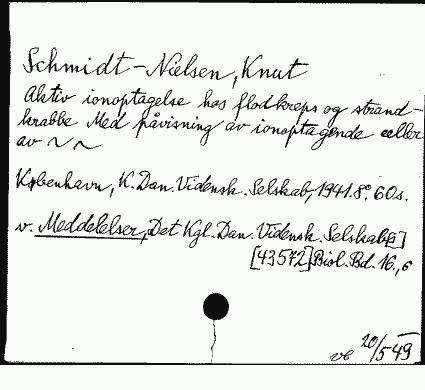 Schmidt-Nielsen, Knut
Aktiv ionoptagelse hos flodkreps og strand-
krabbe Med påvisning av ionoptagende celler
av ~ ~
København, K. Dan. Vidensk. Selskab, 1941. 8º. 60 s.
v. Meddelelser, Det Kgl. Dan. Vidensk. Selskab[s]
[43572] Biol. Bd. 16,,6
20/5 49